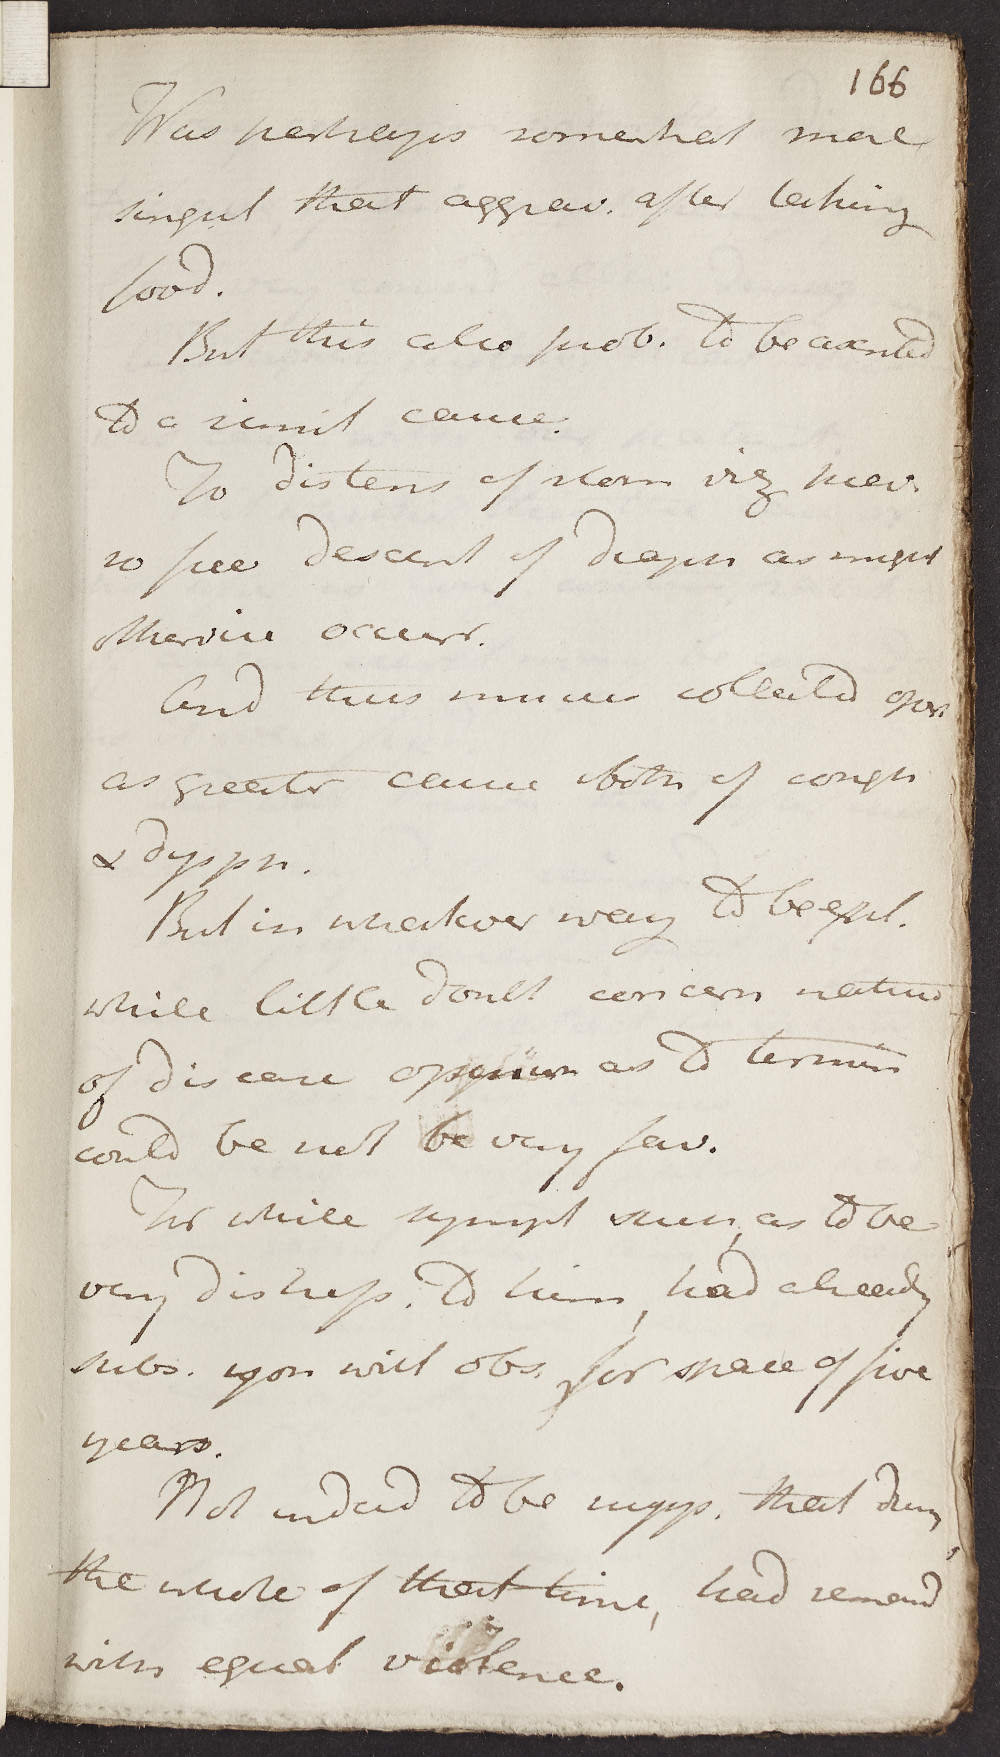 166
Was perhaps somewhat more
singul that aggrav. after taking
food.
But this also prob. to be
to a simil cause.
To distens of stom viz prev.
so free descent of diaph as might
otherwise occurr.
And thus mucus collected oper
as greater cause both of cough
& dyspn.
But in whatever way to be expl.
while little doubt concern nature
of disease opinion as to termin
could be not be very fav.
For while sympt such, as to be
very distress. to him, had already
subs. you will obs. for space of five
years.
Not indeed to be supp. that dury
the whole of that time, had remaind
with equal violence.